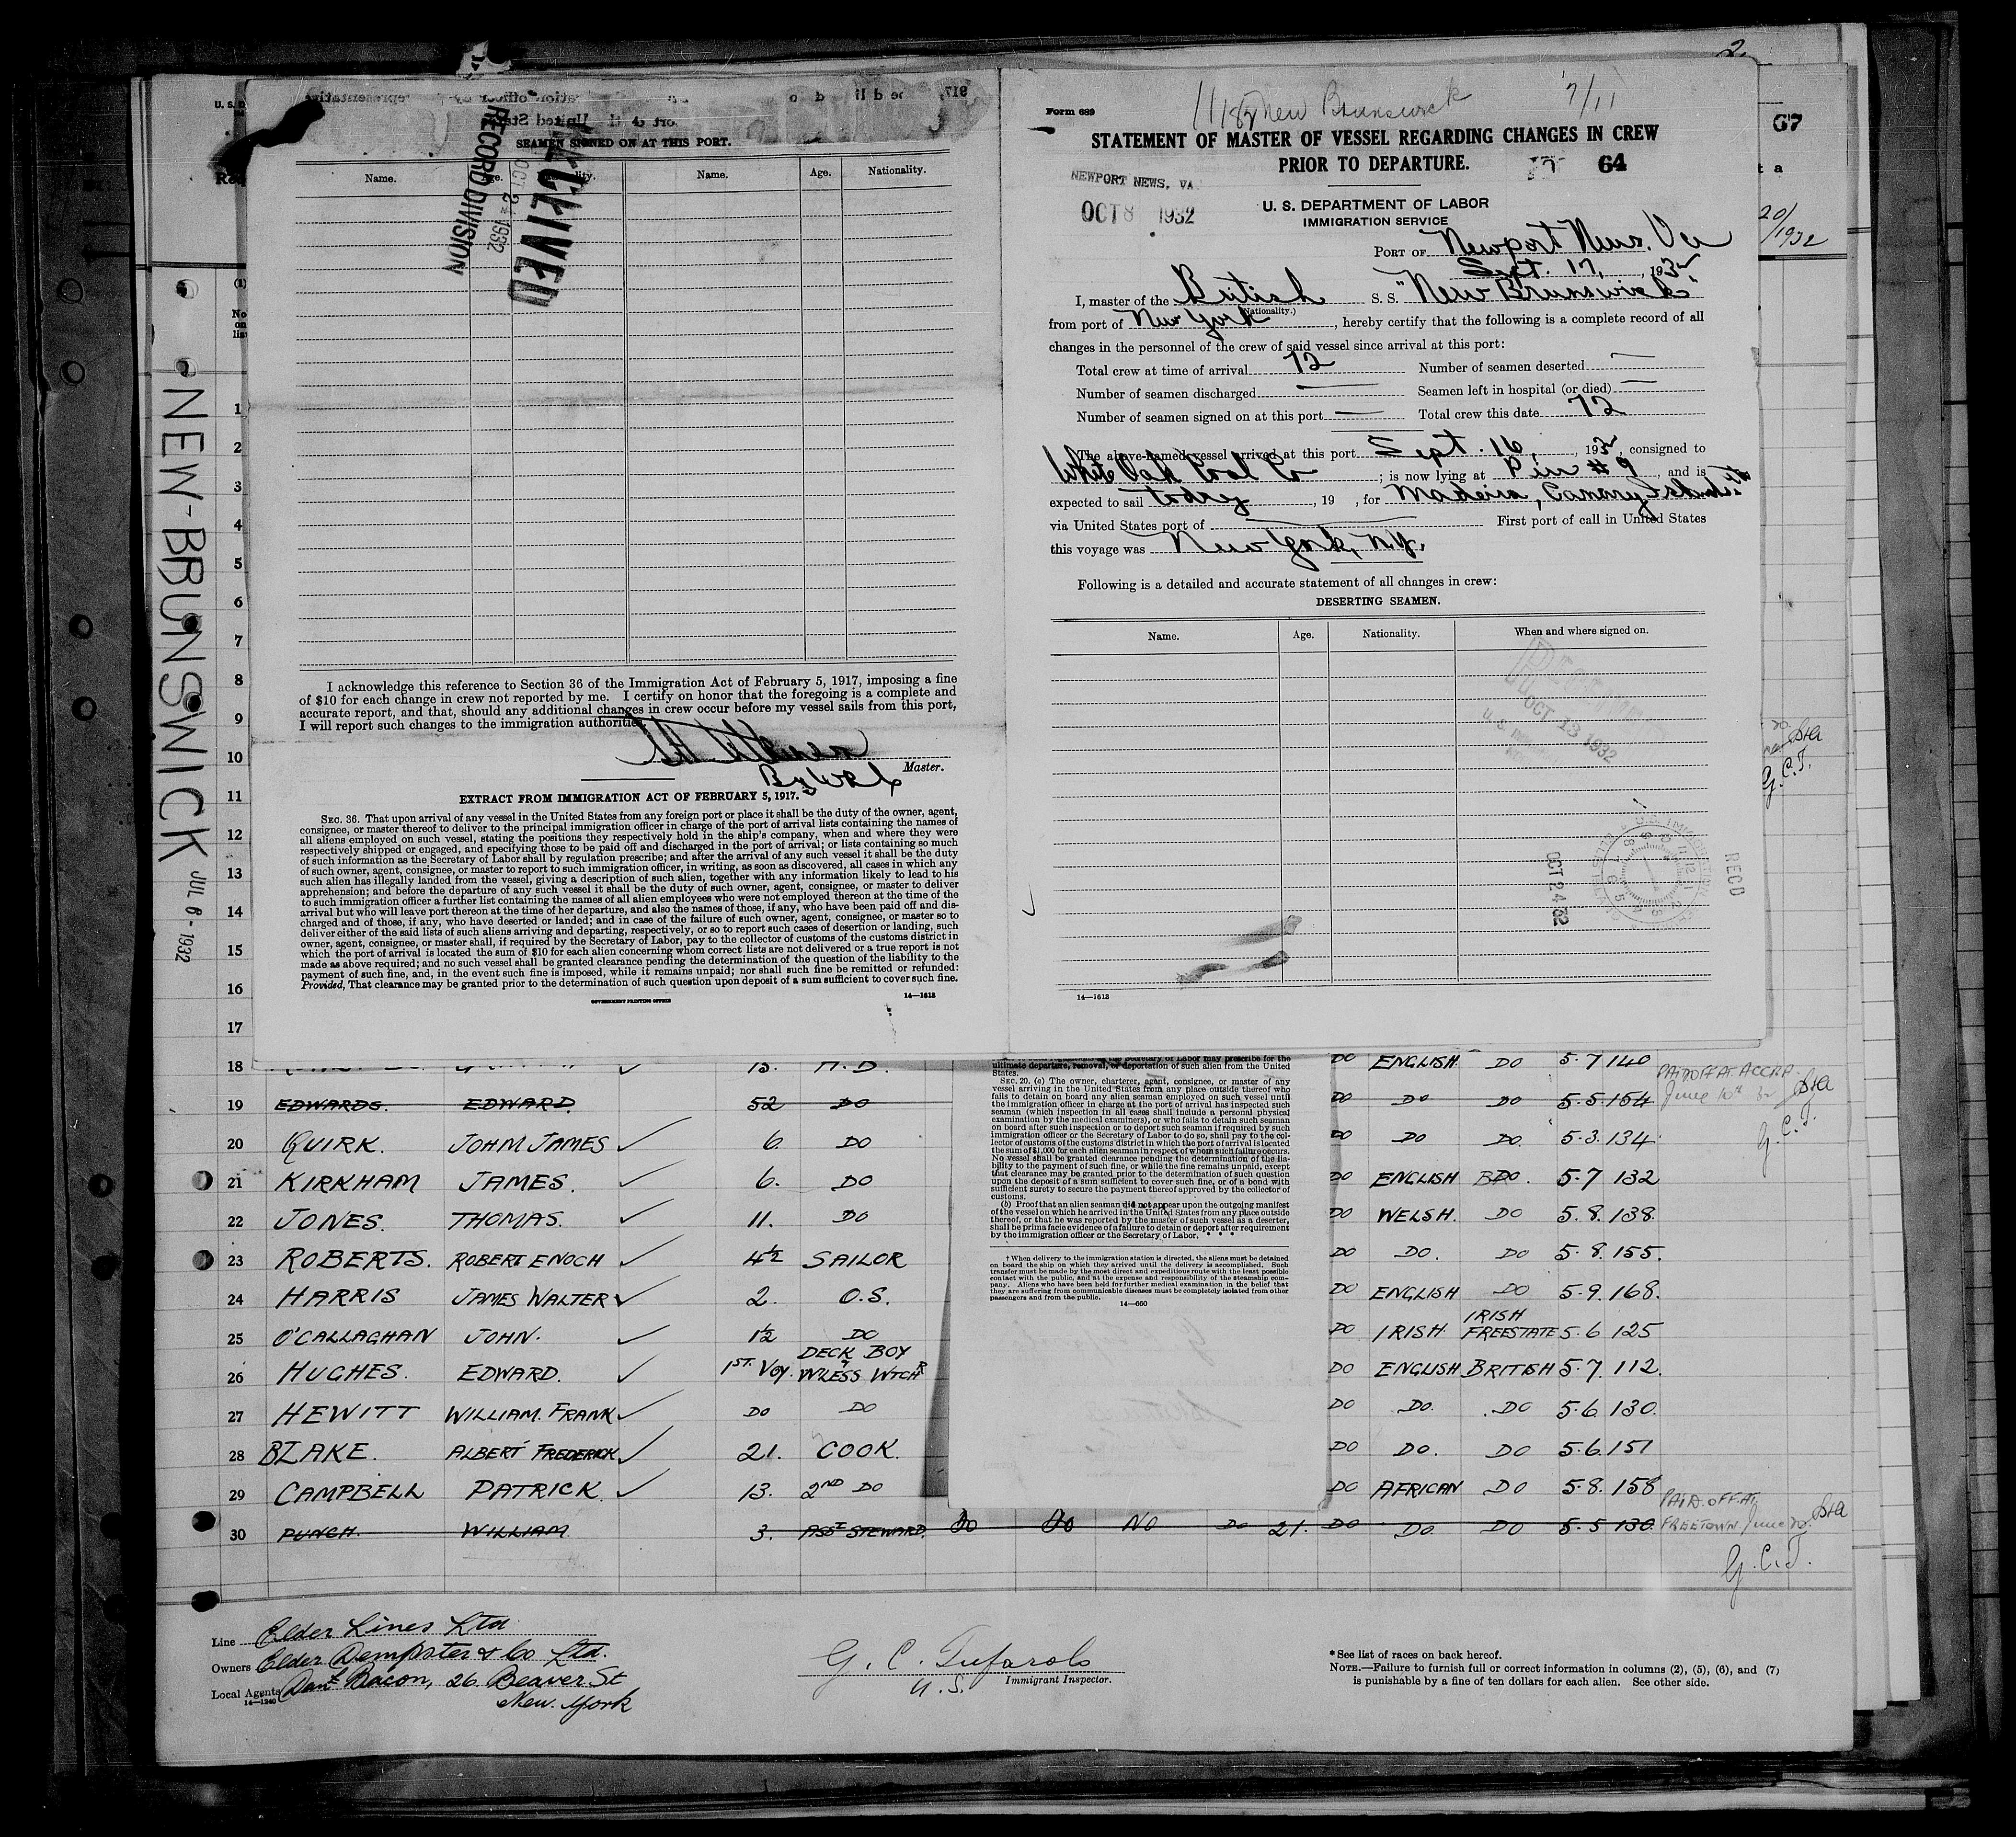 2
67
20/1932
NEW-BRUNSWICK JUL 6 - 1932
SEAMEN SIGNED ON AT THIS PORT.
Name. Age. Nationality. Name. Age. Nationality.
RECEIVED
OCT 24 1932
RECORD DIVISION
I acknowledge this reference to Section 36 of the Immigration Act of February 5, 1917, imposing a fine
of $10 for each change in crew not reported by me. I certify on honor that the foregoing is a complete and
accurate report, and that, should any additional changes in crew occur before my vessel sails from this port,
I will report such changes to the immigration authorities.
Master.
EXTRACT FROM IMMIGRATION ACT OF FEBRUARY 5, 1917.
SEC. 36. That upon arrival of any vessel in the United States from any foreign port or place it shall be the duty of the owner, agent,
consignee, or master thereof to deliver to the principal immigration officer in charge of the port of arrival lists containing the names of
all aliens employed on such vessel, stating the positions they respectively hold in the ship's company, when and where they were
respectively shipped or engaged, and specifying those to be paid off and discharged in the port of arrival; or lists containing so much
of such information as the Secretary of Labor shall by regulation prescribe; and after the arrival of any such vessel it shall be the duty
of such owner, agent, consignee, or master to report to such immigration officer, in writing, as soon as discovered, all cases in which any
such alien has illegally landed from the vessel, giving a description of such alien, together with any information likely to lead to his
apprehension; and before the departure of any such vessel it shall be the duty of such owner, agent, consignee, or master to deliver
to such immigration officer a further list containing the names of all alien employees who were not employed thereon at the time of the
arrival but who will leave port thereon at the time of her departure, and also the names of those, if any, who have been paid off and dis-
charged and of those, if any, who have deserted or landed; and in case of the failure of such owner, agent, consignee, or master so to
deliver either of the said lists of such aliens arriving and departing, respectively, or so to report such cases of desertion or landing, such
owner, agent, consignee, or master shall, if required by the Secretary of Labor, pay to the collector of customs of the customs district in
which the port of arrival is located the sum of $10 for each alien concerning whom correct lists are not delivered or a true report is not
made as above required; and no such vessel shall be granted clearance pending the determination of the question of the liability to the
payment of such fine, and, in the event such fine is imposed, while it remains unpaid; nor shall such fine be remitted or refunded:
Provided, That clearance may be granted prior to the determination of such question upon deposit of a sum sufficient to cover such fine.
GOVERNMENT PRINTING OFFICE 14—1613
Form 689
New Brunswick 7/11
STATEMENT OF MASTER OF VESSEL REGARDING CHANGES IN CREW
PRIOR TO DEPARTURE. 64
NEWPORT NEWS, VA
OCT 8 1932
U. S. DEPARTMENT OF LABOR
IMMIGRATION SERVICE
PORT OF Newport News, Va
Sept. 17, 1932
I, master of the British S. S. "New Brunswick"
(Nationality.)
from port of New York, hereby certify that the following is a complete record of all
changes in the personnel of the crew of said vessel since arrival at this port:
Total crew at time of arrival 72 Number of seamen deserted —
Number of seamen discharged — Seamen left in hospital (or died) —
Number of seamen signed on at this port — Total crew this date 72
The above-named vessel arrived at this port Sept. 16, 1932, consigned to
White Oak Coal Co ; is now lying at Pier #9 and is
expected to sail today, 19 , for Madeira, Canary Islands
via United States port of — First port of call in United States
this voyage was New York, N.Y.
Following is a detailed and accurate statement of all changes in crew:
DESERTING SEAMEN.
Name. Age. Nationality. When and where signed on.
OCT 13 1932
OCT 24 32
REC'D
14—1613
1
2
3
4
5
6
7
8
9
10
11
12
13
14
15
16
17
18 DO ENGLISH DO 5.7 140
19 EDWARDS. EDWARD 52 DO DO DO DO 5.5 154 PAID OFF AT ACCRA
20 QUIRK. JOHN JAMES ✓ 6. DO DO DO DO 5.3. 134 G.C.T.
21 KIRKHAM JAMES. ✓ 6. DO DO ENGLISH DO. 5.7 132
22 JONES. THOMAS. ✓ 11. DO DO WELSH. DO 5.8. 138.
23 ROBERTS. ROBERT ENOCH ✓ 4½ SAILOR DO DO. DO 5.8. 155.
24 HARRIS JAMES WALTER ✓ 2. O.S. DO ENGLISH DO 5.9. 168.
25 O'CALLAGHAN JOHN. ✓ 1½ DO DO IRISH IRISH FREESTATE 5.6 125
26 HUGHES. EDWARD. ✓ 1ST. VOY. DECK BOY & W'LESS WTCHR DO ENGLISH BRITISH 5.7. 112.
27 HEWITT WILLIAM. FRANK ✓ DO DO DO DO. DO 5.6. 130.
28 BLAKE. ALBERT FREDERICK ✓ 21. COOK. DO DO. DO 5.6. 151
29 CAMPBELL PATRICK. ✓ 13. 2ND DO DO AFRICAN DO 5.8. 158
30 PUNCH. WILLIAM 3. ASST STEWARD. DO DO NO DO 21. DO DO DO 5.5 130. PAID OFF AT FREETOWN. June 20.
G.C.T.
the Secretary of Labor may prescribe for the
ultimate departure, removal, or deportation of such alien from the United
States.
SEC. 20. (a) The owner, charterer, agent, consignee, or master of any
vessel arriving in the United States from any place outside thereof who
fails to detain on board any alien seaman employed on such vessel until
the immigration officer in charge at the port of arrival has inspected such
seaman (which inspection in all cases shall include a personal physical
examination by the medical examiners), or who fails to detain such seaman
on board after such inspection or to deport such seaman if required by such
immigration officer or the Secretary of Labor to do so, shall pay to the col-
lector of customs of the customs district in which the port of arrival is located
the sum of $1,000 for each alien seaman in respect of whom such failure occurs.
No vessel shall be granted clearance pending the determination of the lia-
bility to the payment of such fine, or while the fine remains unpaid, except
that clearance may be granted prior to the determination of such question
upon the deposit of a sum sufficient to cover such fine, or of a bond with
sufficient surety to secure the payment thereof approved by the collector of
customs.
(b) Proof that an alien seaman did not appear upon the outgoing manifest
of the vessel on which he arrived in the United States from any place outside
thereof, or that he was reported by the master of such vessel as a deserter,
shall be prima facie evidence of a failure to detain or deport after requirement
by the immigration officer or the Secretary of Labor. * * *
† When delivery to the immigration station is directed, the aliens must be detained
on board the ship on which they arrived until the delivery is accomplished. Such
transfer must be made by the most direct and expeditious route with the least possible
contact with the public, and at the expense and responsibility of the steamship com-
pany. Aliens who have been held for further medical examination in the belief that
they are suffering from communicable diseases must be completely isolated from other
passengers and from the public.
14—660
Line Elder Lines Ltd
Owners Elder Dempster & Co Ltd.
Local Agents Danl Bacon, 26 Beaver St
14—1240 New York
G. C. Tufarolo
U.S. Immigrant Inspector.
*See list of races on back hereof.
NOTE.—Failure to furnish full or correct information in columns (2), (5), (6), and (7)
is punishable by a fine of ten dollars for each alien. See other side.